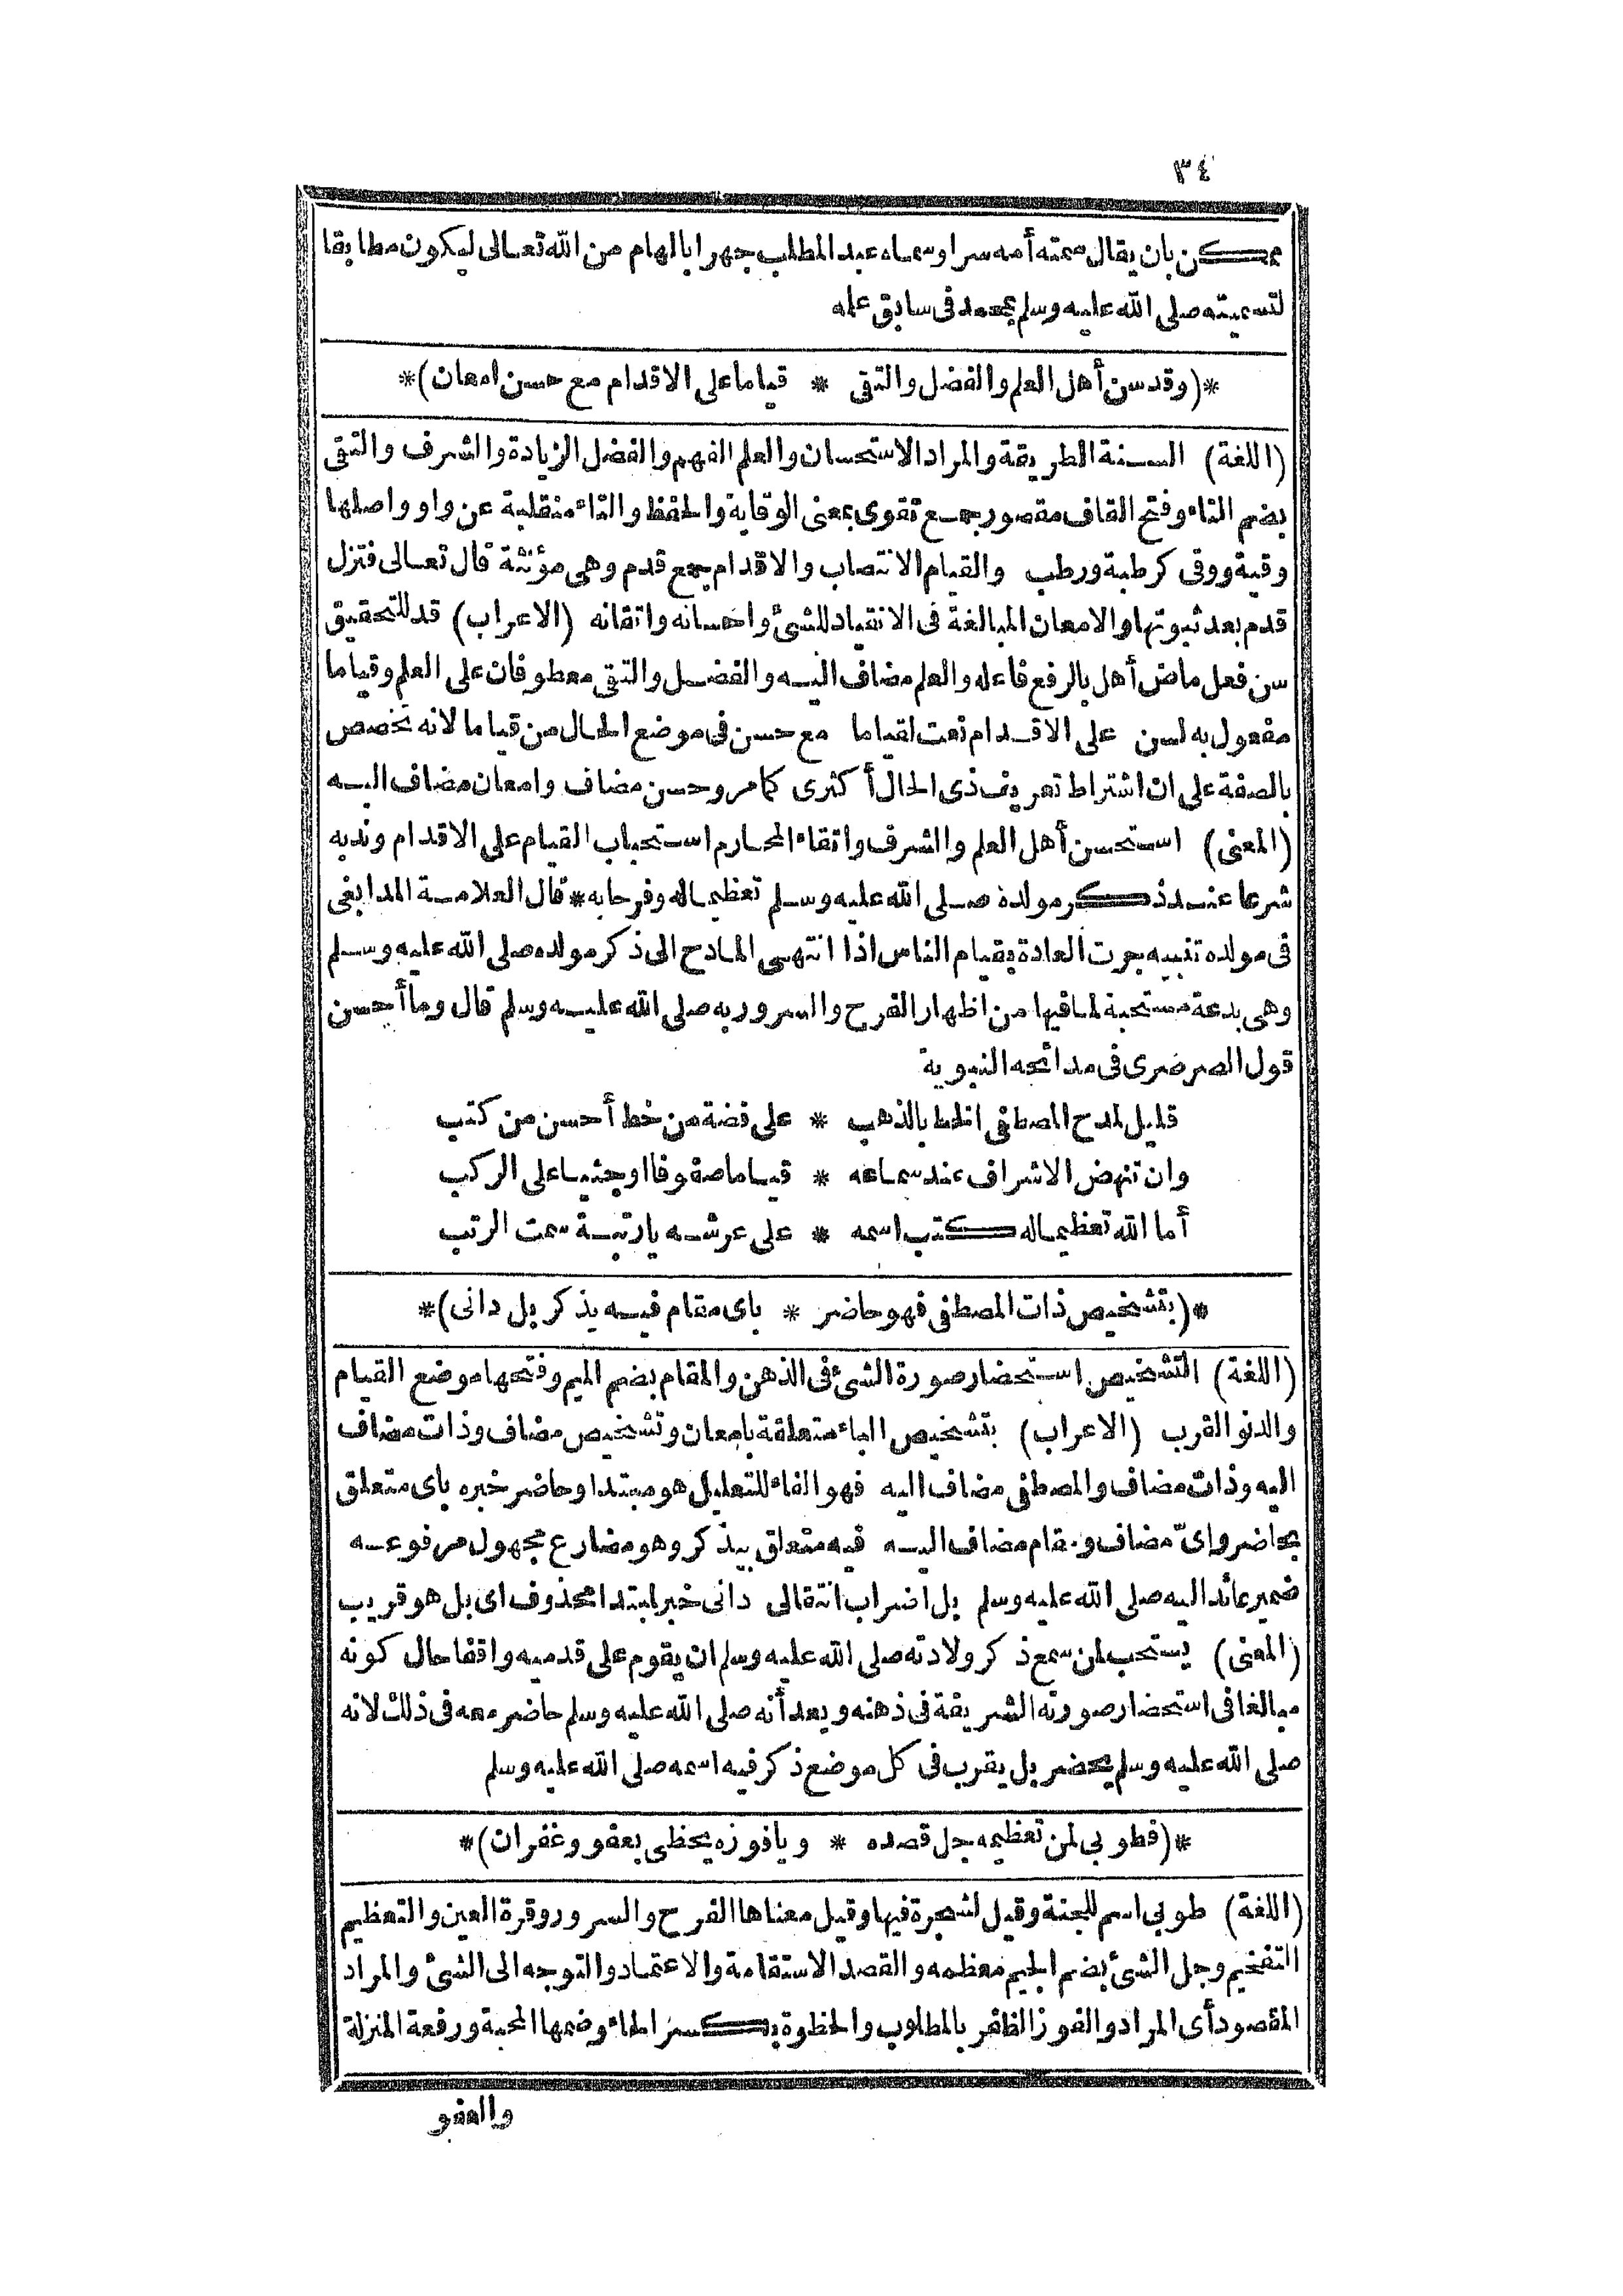 ٣٤
ممكن بان يقال سمته أمه سرا وسماه عبد المطلب جهرا بالهام من الله تعالى ليكون مطابقا
لتسميته صلى الله عليه وسلم بمحمد فى سابق علمه
*(وقد سن أهل العلم والفضل والتقى * قياما على الاقدام مع حسن امعان)*
(اللغة) السنة الطريقة والمراد الاستحسان والعلم الفهم والفضل الزيادة والشرف والتقى
بضم التاء وفتح القاف مقصور جمع تقوى بمعنى الوقاية والحفظ والتاء منقلبة عن واو واصلها
وقية ووقى كرطبة ورطب والقيام الانتصاب والاقدام جمع قدم وهى مؤنثة قال تعالى فتزل
قدم بعد ثبوتها والامعان المبالغة فى الانقياد للشئ واحسانه واتقانه (الاعراب) قد للتحقيق
سن فعل ماض أهل بالرفع فاعله والعلم مضاف اليه والفضل والتقى معطوفان على العلم وقياما
مفعول به لسن على الاقدام نعت لقياما مع حسن فى موضع الحال من قياما لانه تخصص
بالصفة على ان اشتراط تعريف ذى الحال أكثرى كما مر وحسن مضاف وامعان مضاف اليه
(المعنى) استحسن أهل العلم والشرف واتقاء المحارم استحباب القيام على الاقدام وندبه
شرعا عند ذكر مولده صلى الله عليه وسلم تعظيما له وفرحا به * قال العلامة المدابغى
فى مولده تنبيه جرت العادة بقيام الناس اذا انتهى المادح الى ذكر مولده صلى الله عليه وسلم
وهى بدعة مستحبة لما فيها من اظهار الفرح والسرور به صلى الله عليه وسلم قال وما أحسن
قول الصرصرى فى مدائحه النبوية
قليل لمدح المصطفى الخط بالذهب * على فضة من خط أحسن من كتب
وان تنهض الاشراف عند سماعه * قياما صفوفا او جثيا على الركب
أما الله تعظيما له كتب اسمه * على عرشه يا رتبة سمت الرتب
*(بتشخيص ذات المصطفى فهو حاضر * باى مقام فيه يذكر بل دانى)*
(اللغة) التشخيص استحضار صورة الشئ فى الذهن والمقام بضم الميم وفتحها موضع القيام
والدنو القرب (الاعراب) بتشخيص الباء متعلقة بامعان وتشخيص مضاف وذات مضاف
اليه وذات مضاف والمصطفى مضاف اليه فهو الفاء للتعليل هو مبتدا وحاضر خبره باى متعلق
بحاضر واىّ مضاف ومقام مضاف اليه فيه متعلق بيذكر وهو مضارع مجهول مرفوعه
ضمير عائد اليه صلى الله عليه وسلم بل اضراب انتقالى دانى خبر لمبتدا محذوف اى بل هو قريب
(المعنى) يستحب لمن سمع ذكر ولادته صلى الله عليه وسلم ان يقوم على قدميه واقفا حال كونه
مبالغا فى استحضار صورته الشريفة فى ذهنه ويعد أنه صلى الله عليه وسلم حاضر معه فى ذلك لانه
صلى الله عليه وسلم يحضر بل يقرب فى كل موضع ذكر فيه اسمه صلى الله عليه وسلم
*(فطوبى لمن تعظيمه جل قصده * ويا فوزه يحظى بعفو وغفران)*
(اللغة) طوبى اسم للجنة وقيل لشجرة فيها وقيل معناها الفرح والسرور وقرة العين والتعظيم
التفخيم وجل الشئ بضم الجيم معظمه والقصد الاستقامة والاعتماد والتوجه الى الشئ والمراد
المقصود أى المراد والفوز الظفر بالمطلوب والحظوة بكسر الحاء وضمها المحبة ورفعة المنزلة
والعفو